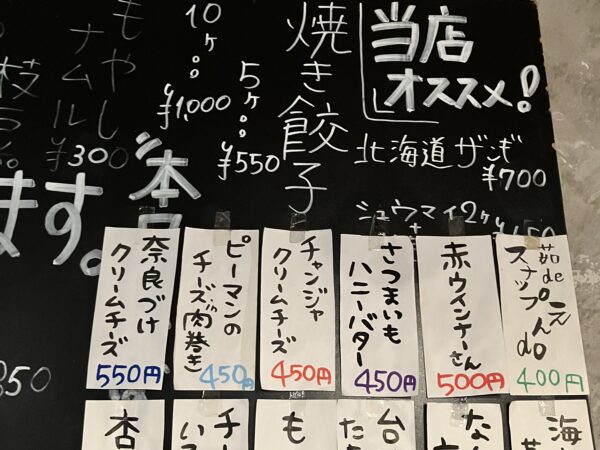 当店
オススメ!
北海道ザンギ
¥700
シュウマイ2ケ
焼き餃子
5ケ
¥550
10ケ
¥1,000
もやし
ナムル
¥300
本日
ます。
茹de
スナップえんdo
400円
赤ウインナーさん
500円
さつまいも
ハニーバター
450円
チャンジャ
クリームチーズ
450円
ピーマンの
チーズ肉巻き
450円
奈良づけ
クリームチーズ
550円
海
なん
台
たち
も
チー
いろ
杏